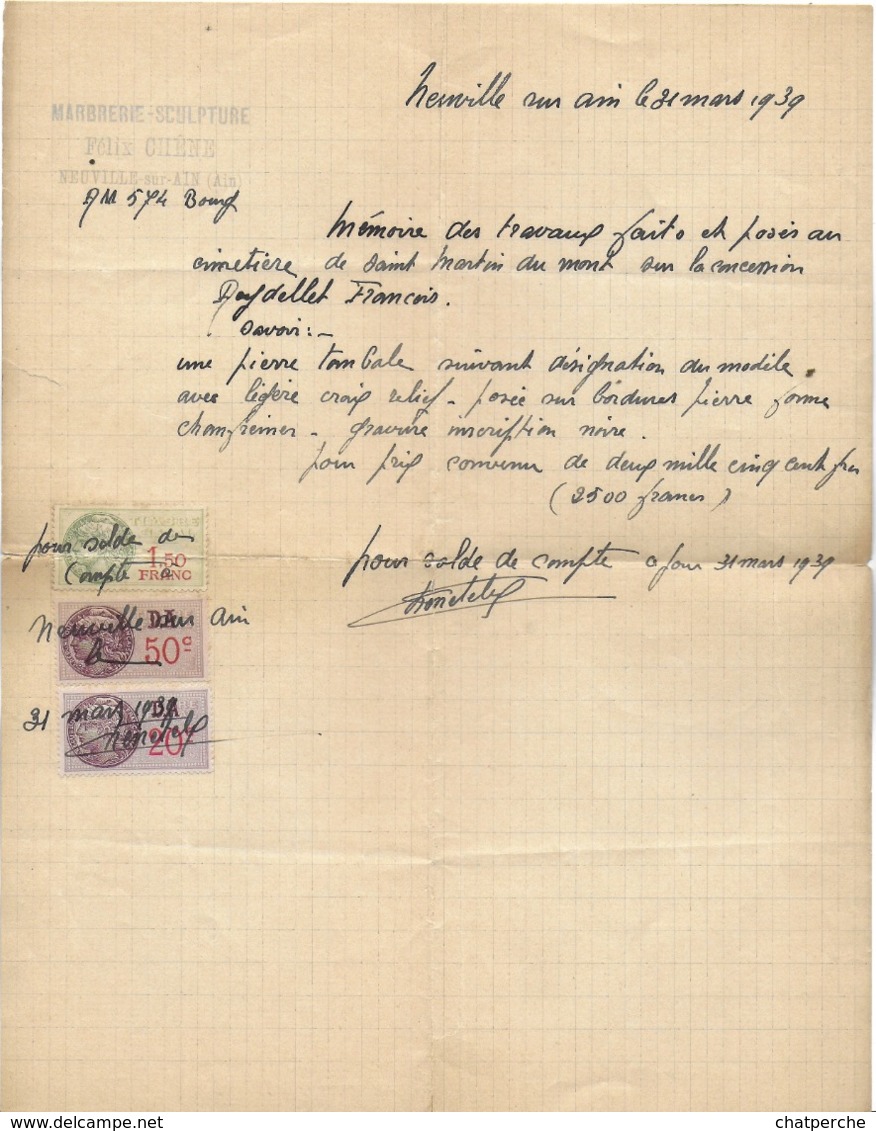 Neuville sur ain le 31 mars 1939
MARBRERIE-SCULPTURE
Félix CHÊNE
NEUVILLE-sur-AIN (Ain)
RM 574 Bourg
Mémoire des travaux faits et posés au
cimetière de Saint Martin du mont sur la concession
François.
savoir :-
une pierre tombale suivant désignation du modèle
avec légère croix relief - posée sur bordures pierre forme
- gravure inscription noire.
pour prix convenu de deux mille cinq cent frs
(2500 francs)
pour solde de compte a jour 31 mars 1939
pour solde de
compte a
1,50
FRANC
Neuville sur ain
DA
50c
le
31 mars 1939
DA
20c
chatperche